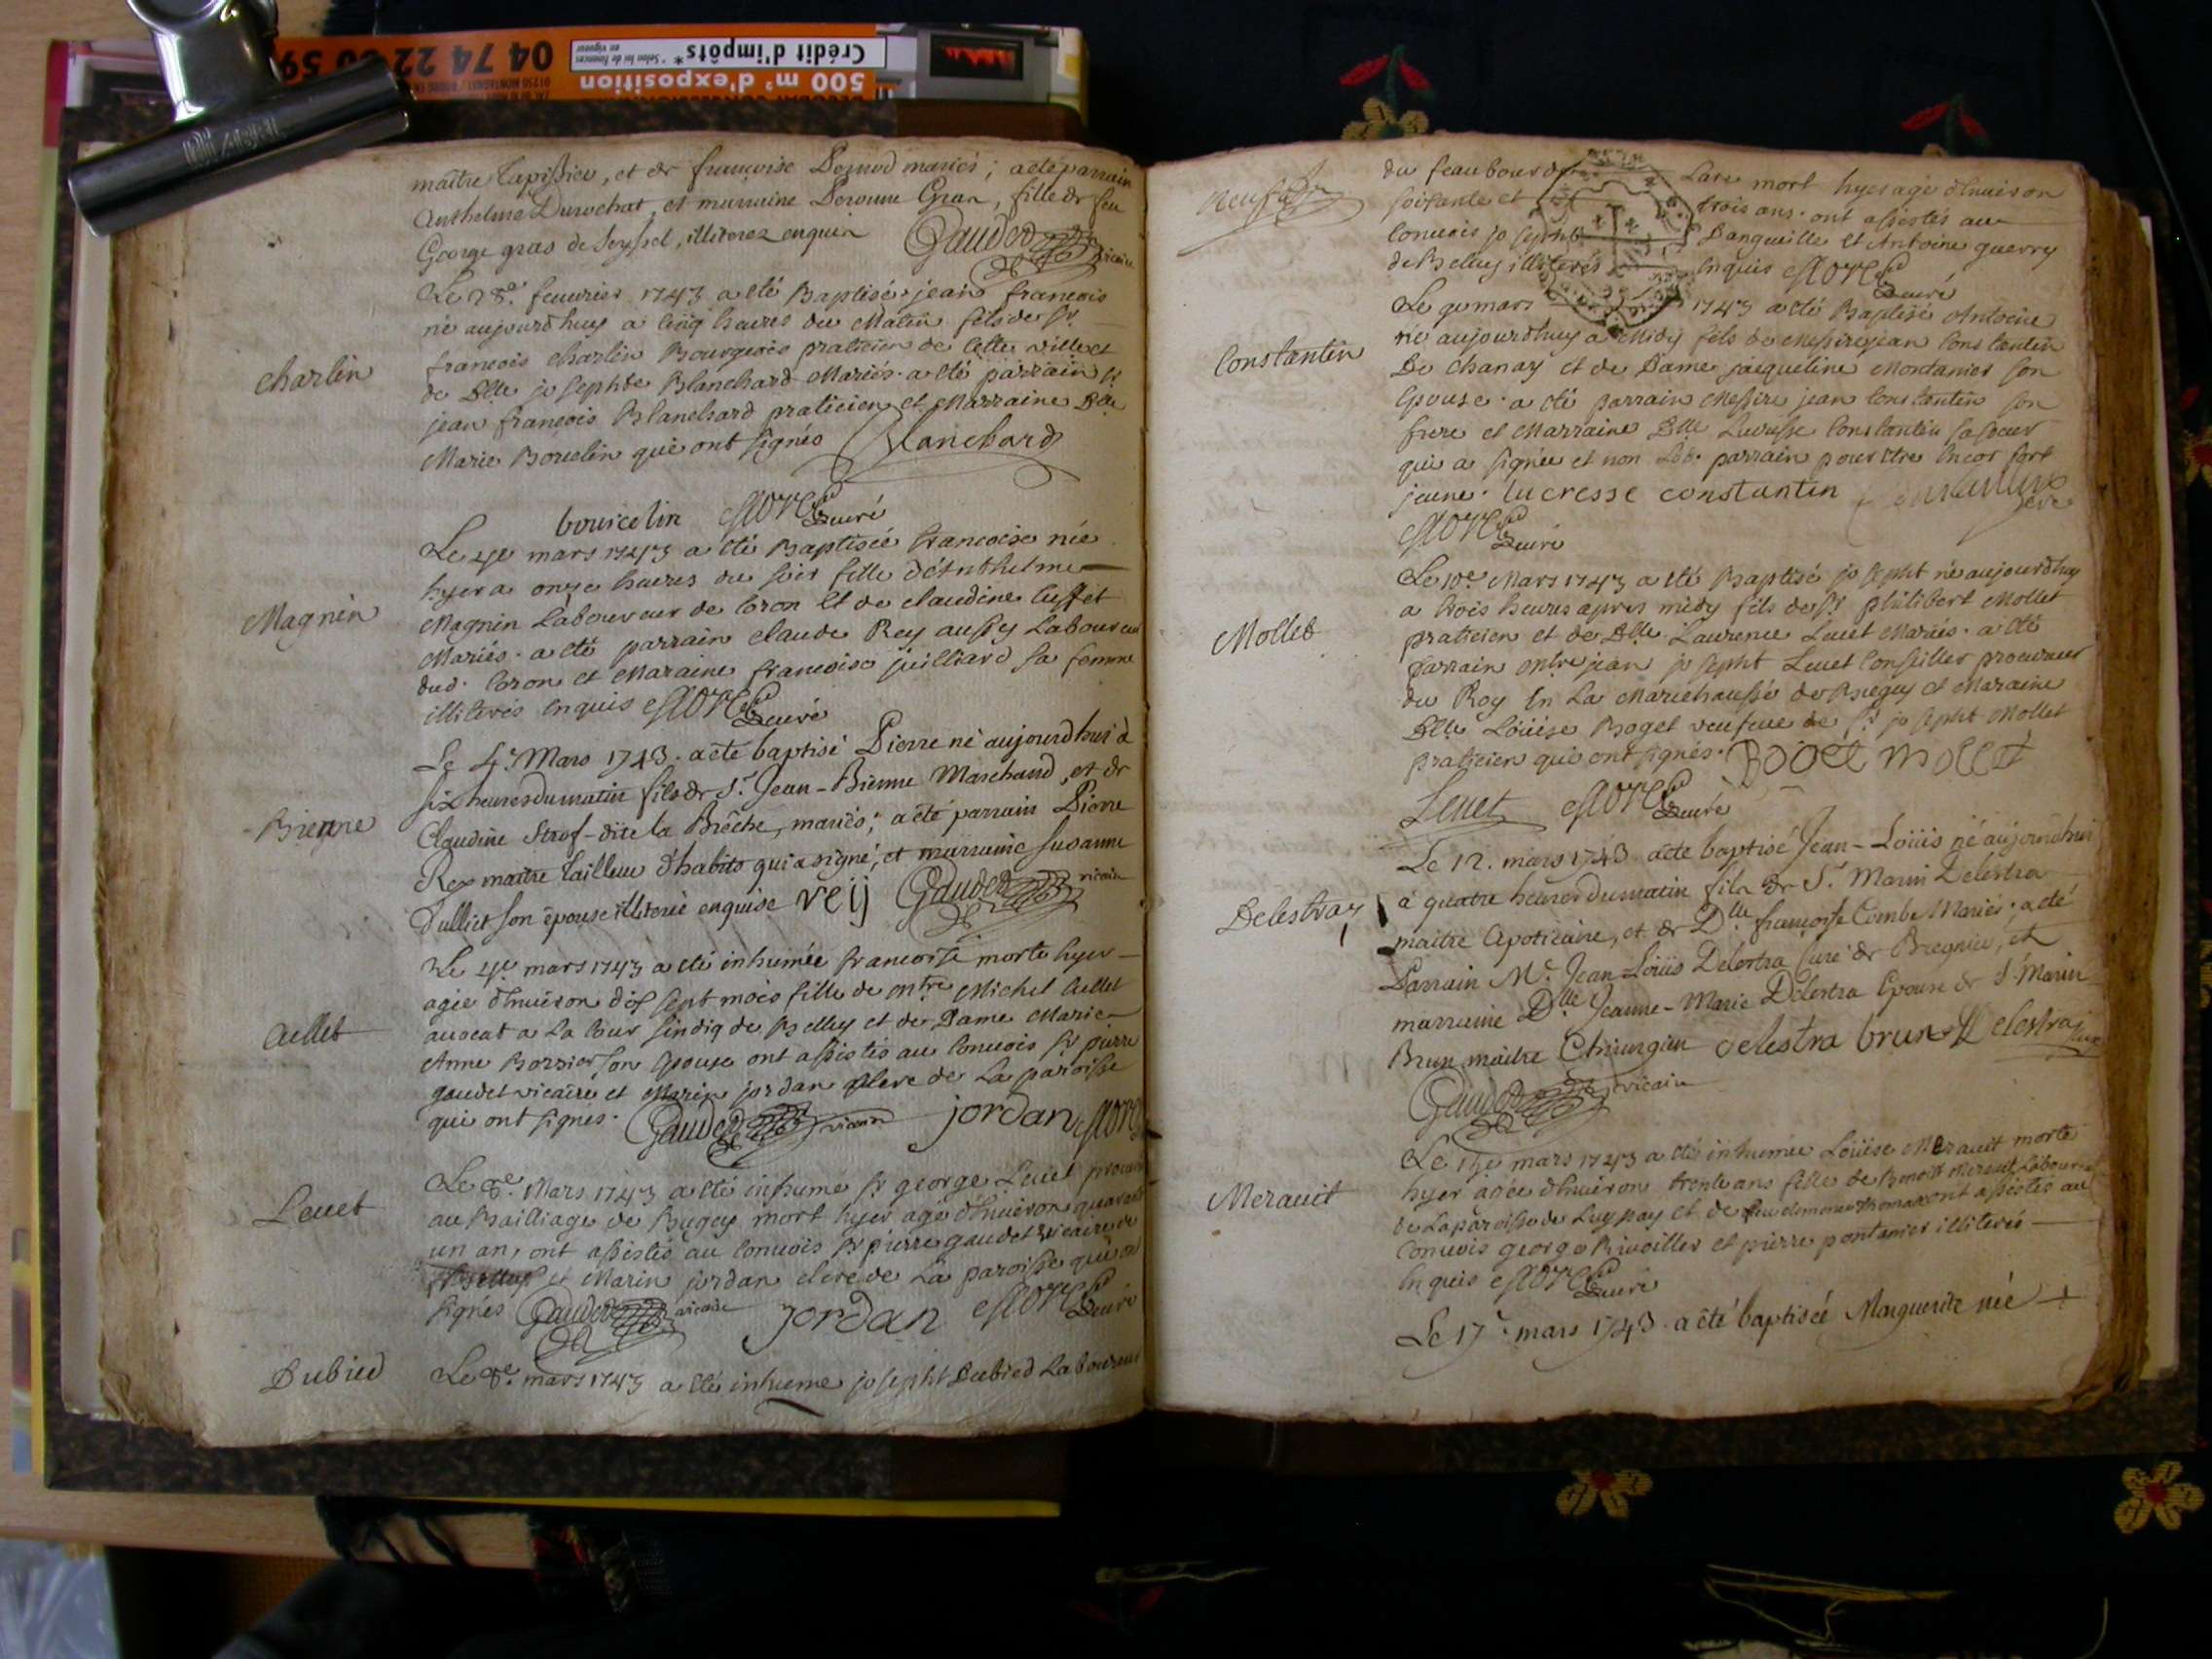 04 74 22 60 59
Crédit d'impôts*
* Selon loi de finances en vigueur
500 m² d'exposition
maître tapissier, et de françoise Dernod mariés ; a eté parrain
Anthelme Durochat, et marraine Peronne Gras, fille de feu
George gras de Seyssel, illiterez enquis Gaudet vicaire
charlin
Le 28e. feuvrier 1743 a eté Baptisé jean francois
né aujourdhuy a cinq heures du Matin fils de Sr.
francois charlin Bourgeois praticien de cette ville et
de Dlle josephte Blanchard Mariés. a eté parrain Sr
jean francois Blanchard praticien et Marraine Dlle
Marie Bourcelin qui ont signés Blanchard
bourcelin curé
Magnin
Le 4e mars 1743 a eté Baptisée francoise née
hyer a onze heures du soir fille d'Anthelme
Magnin Laboureur de Coron et de claudine Cuffet
Mariés. a eté parrain claude Rey aussy Laboureur
dud. Coron et Maraine francoise juilliard sa femme
illiterés enquis curé
Bienne
Le 4e. Mars 1743. a eté baptisé Pierre né aujourdhui à
six heures du matin fils de Sr. Jean-Bienne Marchand, et de
Claudine Strof-dite la Brêche, mariés ; a eté parrain Pierre
Rey maître tailleur d'habits qui a signé, et marraine Susanne
Dulliet son épouse illiterée enquise reij Gaudet vicaire
Aellet
Le 4e mars 1743 a eté inhumée francoise morte hyer
agée d'hnuiron dix sept mois fille de mtre Michel Aellet
auocat a La Cour sindiq de Belley et de Dame Marie
Anne Borssier son Epouse ont assistés au Conuois Sr pierre
gaudet vicaire et Marin jordan clerc de La paroisse
qui ont signés. Gaudet vicaire jordan
Leuet
Le 8e. Mars 1743 a eté inhumé Sr george Leuet procureur
au Bailliage de Bugey mort hyer agé d'hnuiron quarante
un an, ont assistés au Conuois Sr pierre gaudet vicaire de
Belley et Marin jordan clerc de La paroisse qui ont
signés Gaudet vicaire jordan curé
Dubied
Le 8e. mars 1743 a eté inhumé josepht Dubied Laboureur
du feaubourd Lare mort hyer agé d'hnuiron
soixante et trois ans. ont assistés au
Conuois joseph Danqueille et Antoine guerry
de Belley illiterés enquis curé
Constantin
Le 9e mars 1743 a eté Baptisé Antoine
né aujourdhuy a Midy fils de Messire jean Constantin
De Chanay et de Dame jacqueline Montanier son
Epouse. a eté parrain Messire jean Constantin son
frere et Marraine Dlle Lucresse Constantin sa soeur
qui a signée et non Led. parrain pour etre encor fort
jeune. lucresse constantin
curé
Mollet
Le 10e. Mars 1743 a eté Baptisé josepht né aujourdhuy
a trois heures apres midy fils de Sr philibert Mollet
praticien et de Dlle Laurence Leuet Mariés. a eté
parrain mtre jean josepht Leuet Conseiller procureur
du Roy En La Marechaussée de Bugey et Maraine
Dlle Loüise Bogel veufeue de Sr josepht Mollet
praticien qui ont signés. Bogel mollet
Leuet curé
Delestraz
Le 12. mars 1743 a eté baptisé Jean-Loüis né aujourdhui
à quatre heures du matin fils de Sr. Marin Delestra
maitre Apoticaire, et de Dlle françoise Combe Mariés ; a eté
Parrain Mr. Jean Loüis Delestra Curé de Bregnier, et
marraine Dlle Jeanne-Marie Delestra Epouse de Sr. Marin
Brun maître Chirurgien delestra brun Delestra
Gaudet vicaire
Merauit
mars 1743 a eté inhumée Loüise Merauit morte
hyer agée d'hnuiron trente ans fille de Benoit Merauit Laboureur
de La paroisse de Luppay et de ont assistés au
Conuois george Riuoiller et pierre pontanier illiterés
enquis curé
Le 17e. mars 1743. a eté baptisée Marguerite née